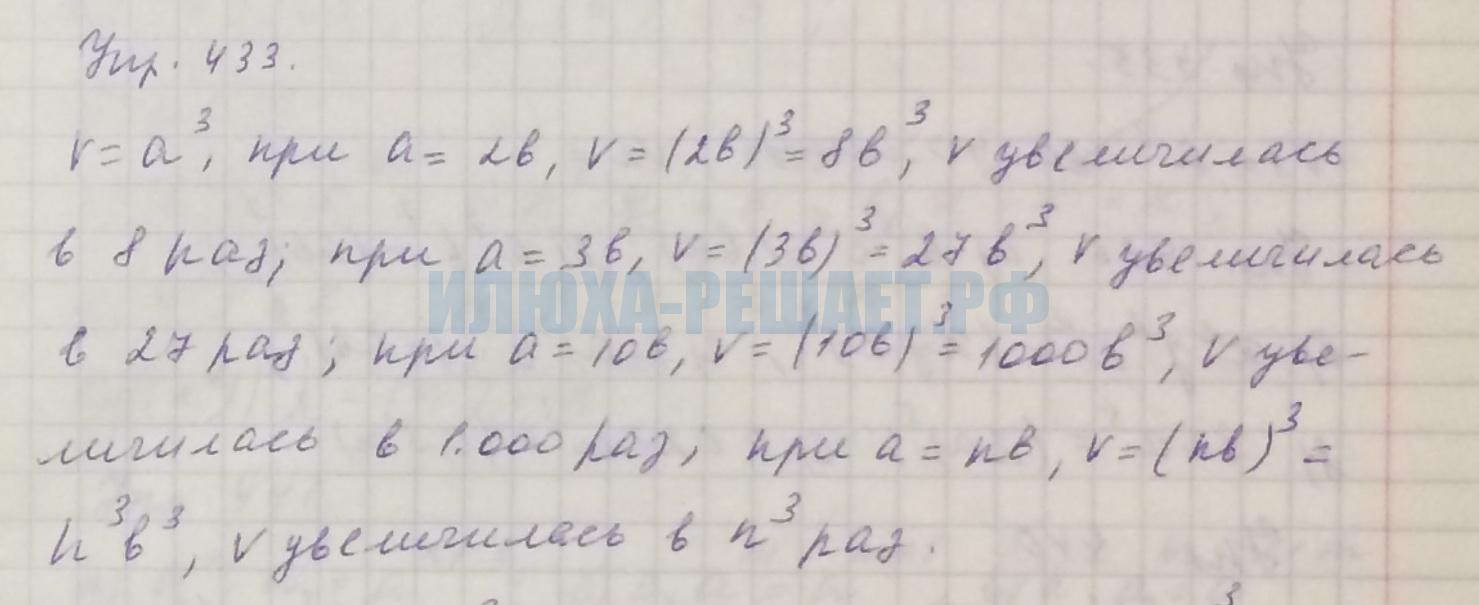 Упр. 433.
V = a³, при a = 2в, V = (2в)³ = 8в³, V увеличилась
в 8 раз; при a = 3в, V = (3в)³ = 27в³, V увеличилась
ИЛЮХА-РЕШАЕТ.РФ
в 27 раз; при a = 10в, V = (10в)³ = 1000в³, V уве-
личилась в 1.000 раз; при a = nв, V = (nв)³ =
n³в³, V увеличилась в n³ раз.